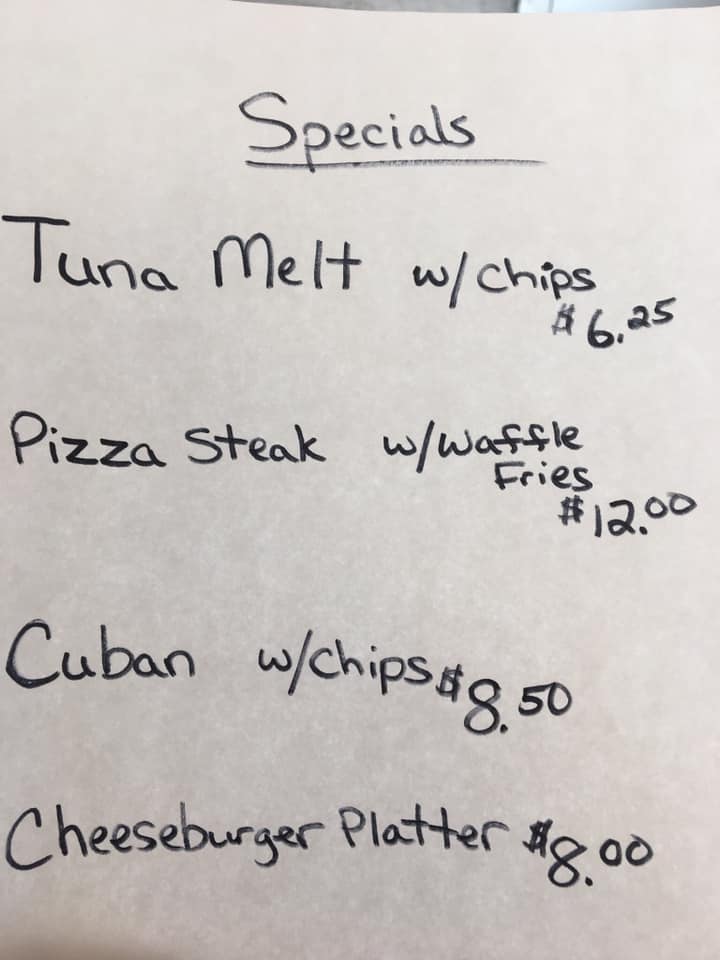 Specials
Tuna Melt w/chips
$6.25
Pizza Steak w/waffle
Fries
$12.00
Cuban w/chips $8.50
Cheeseburger Platter $8.00